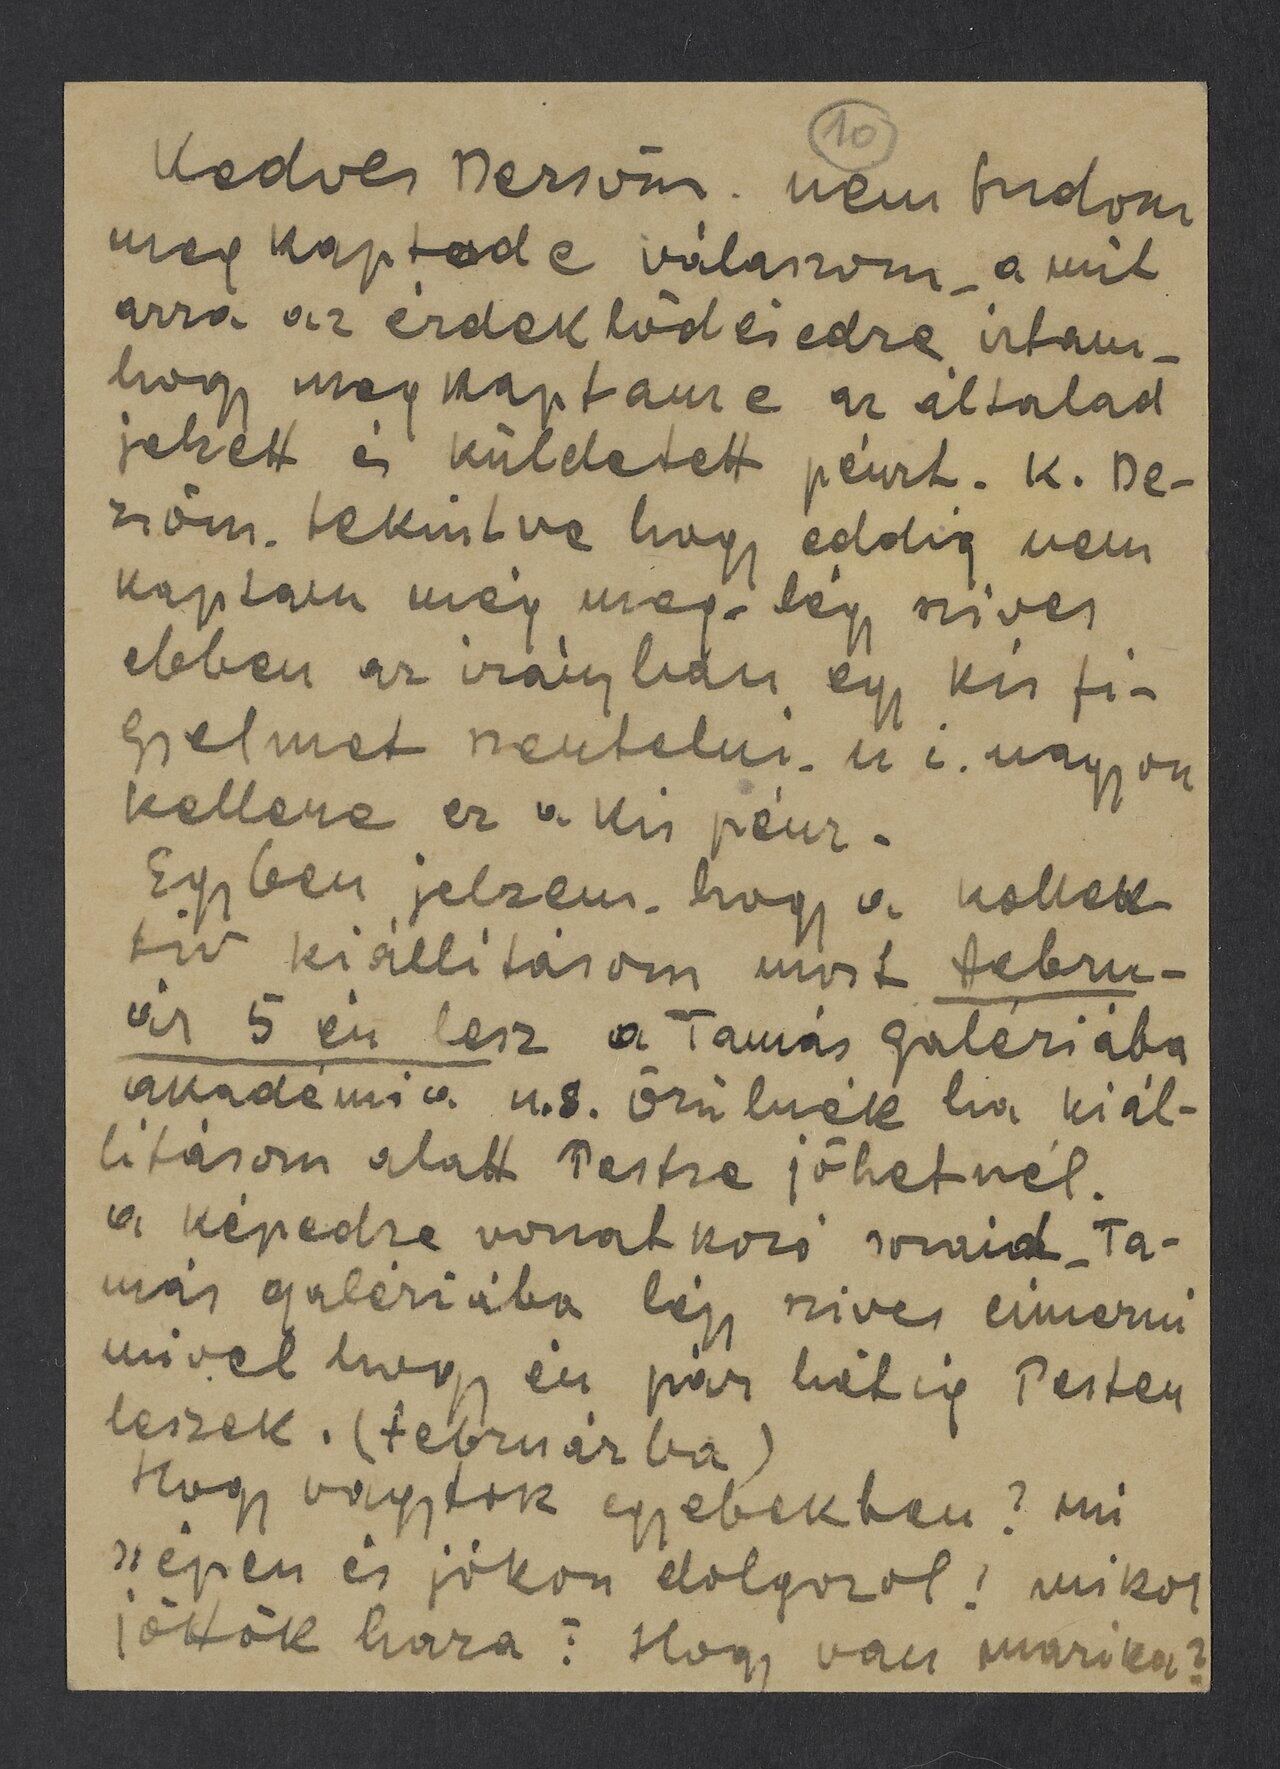 10
Kedves Dersöm. nem tudom
meg kaptad e válaszom – a mit
arra az érdeklődésedre irtam –
hogy megkaptam e az általad
jelzett és küldetett pénzt. K. De-
zsöm. tekintve hogy eddig nem
kaptam még meg – légy szives
ebben az irányban egy kis fi-
gyelmet szentelni. u i. nagyon
kellene ez a kis pénz.
Egyben jelzem. hogy a kollek-
tiv kiállitásom most febru-
ár 5 én lesz a Tamás galériába
akadémia u.8. örülnék ha kiál-
litásom alatt Pestre jöhetnél.
a képedre vonatkozó soraid – Ta-
más galériába légy szives cimezni
mivel hogy én pár hétig Pesten
leszek. (februárba)
Hogy vagytok egyebekben? mi
szépen és jókon dolgozol! mikor
jöttök haza? Hogy van marika?